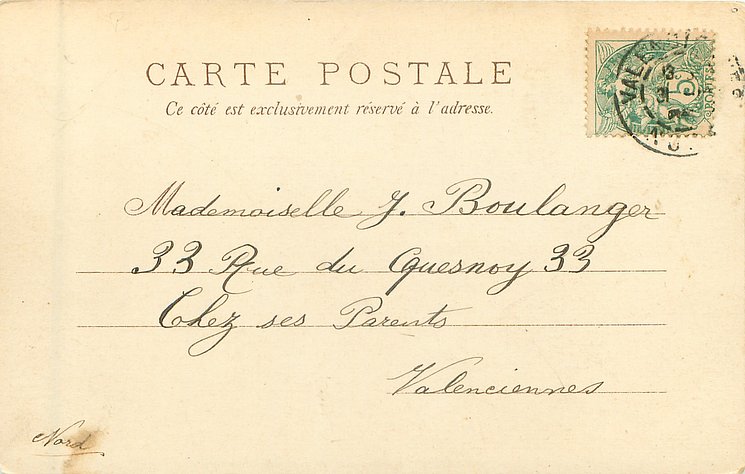 CARTE POSTALE
Ce côté est exclusivement réservé à l'adresse.
Mademoiselle J. Boulanger
33 Rue du Quesnoy 33
Chez ses Parents
Valenciennes
Nord
5